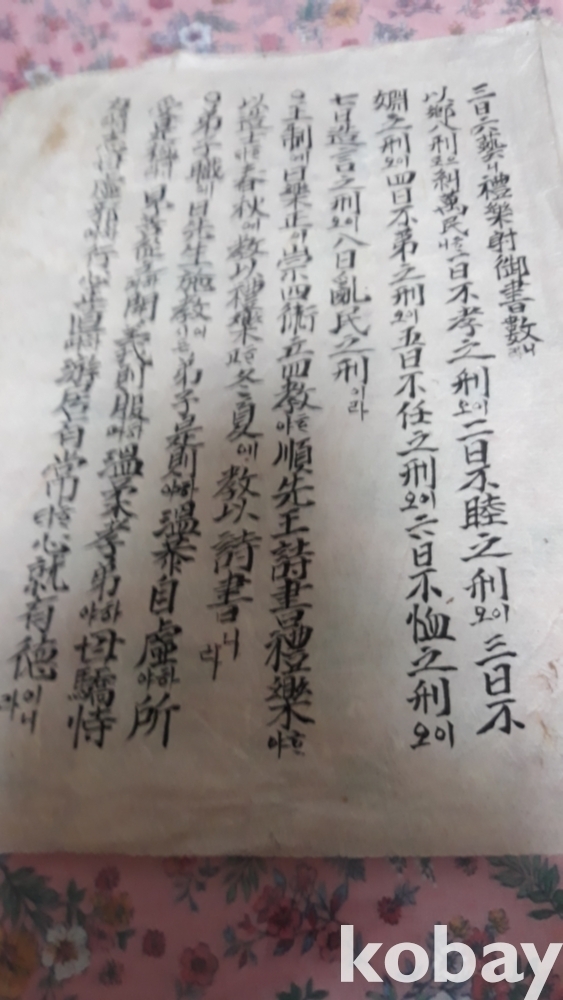 三曰六藝니禮樂射御書數
以鄕八刑으로糾萬民一曰不孝之刑이오二曰不睦之刑이오三曰不
婣之刑이오四曰不弟之刑이오五曰不任之刑이오六曰不恤之刑이오
七曰造言之刑이오八曰亂民之刑이라
○王制에曰樂正이崇四術立四敎하야順先王詩書禮樂하야
以造士春秋에敎以禮樂冬夏에敎以詩書니라
○弟子職에曰先生施敎弟子是則하야溫恭自虛하야所
受是極見善從之聞義則服溫柔孝弟하야毋驕恃
志毋虛邪行必正直游居有常必就有德이니라
kobay